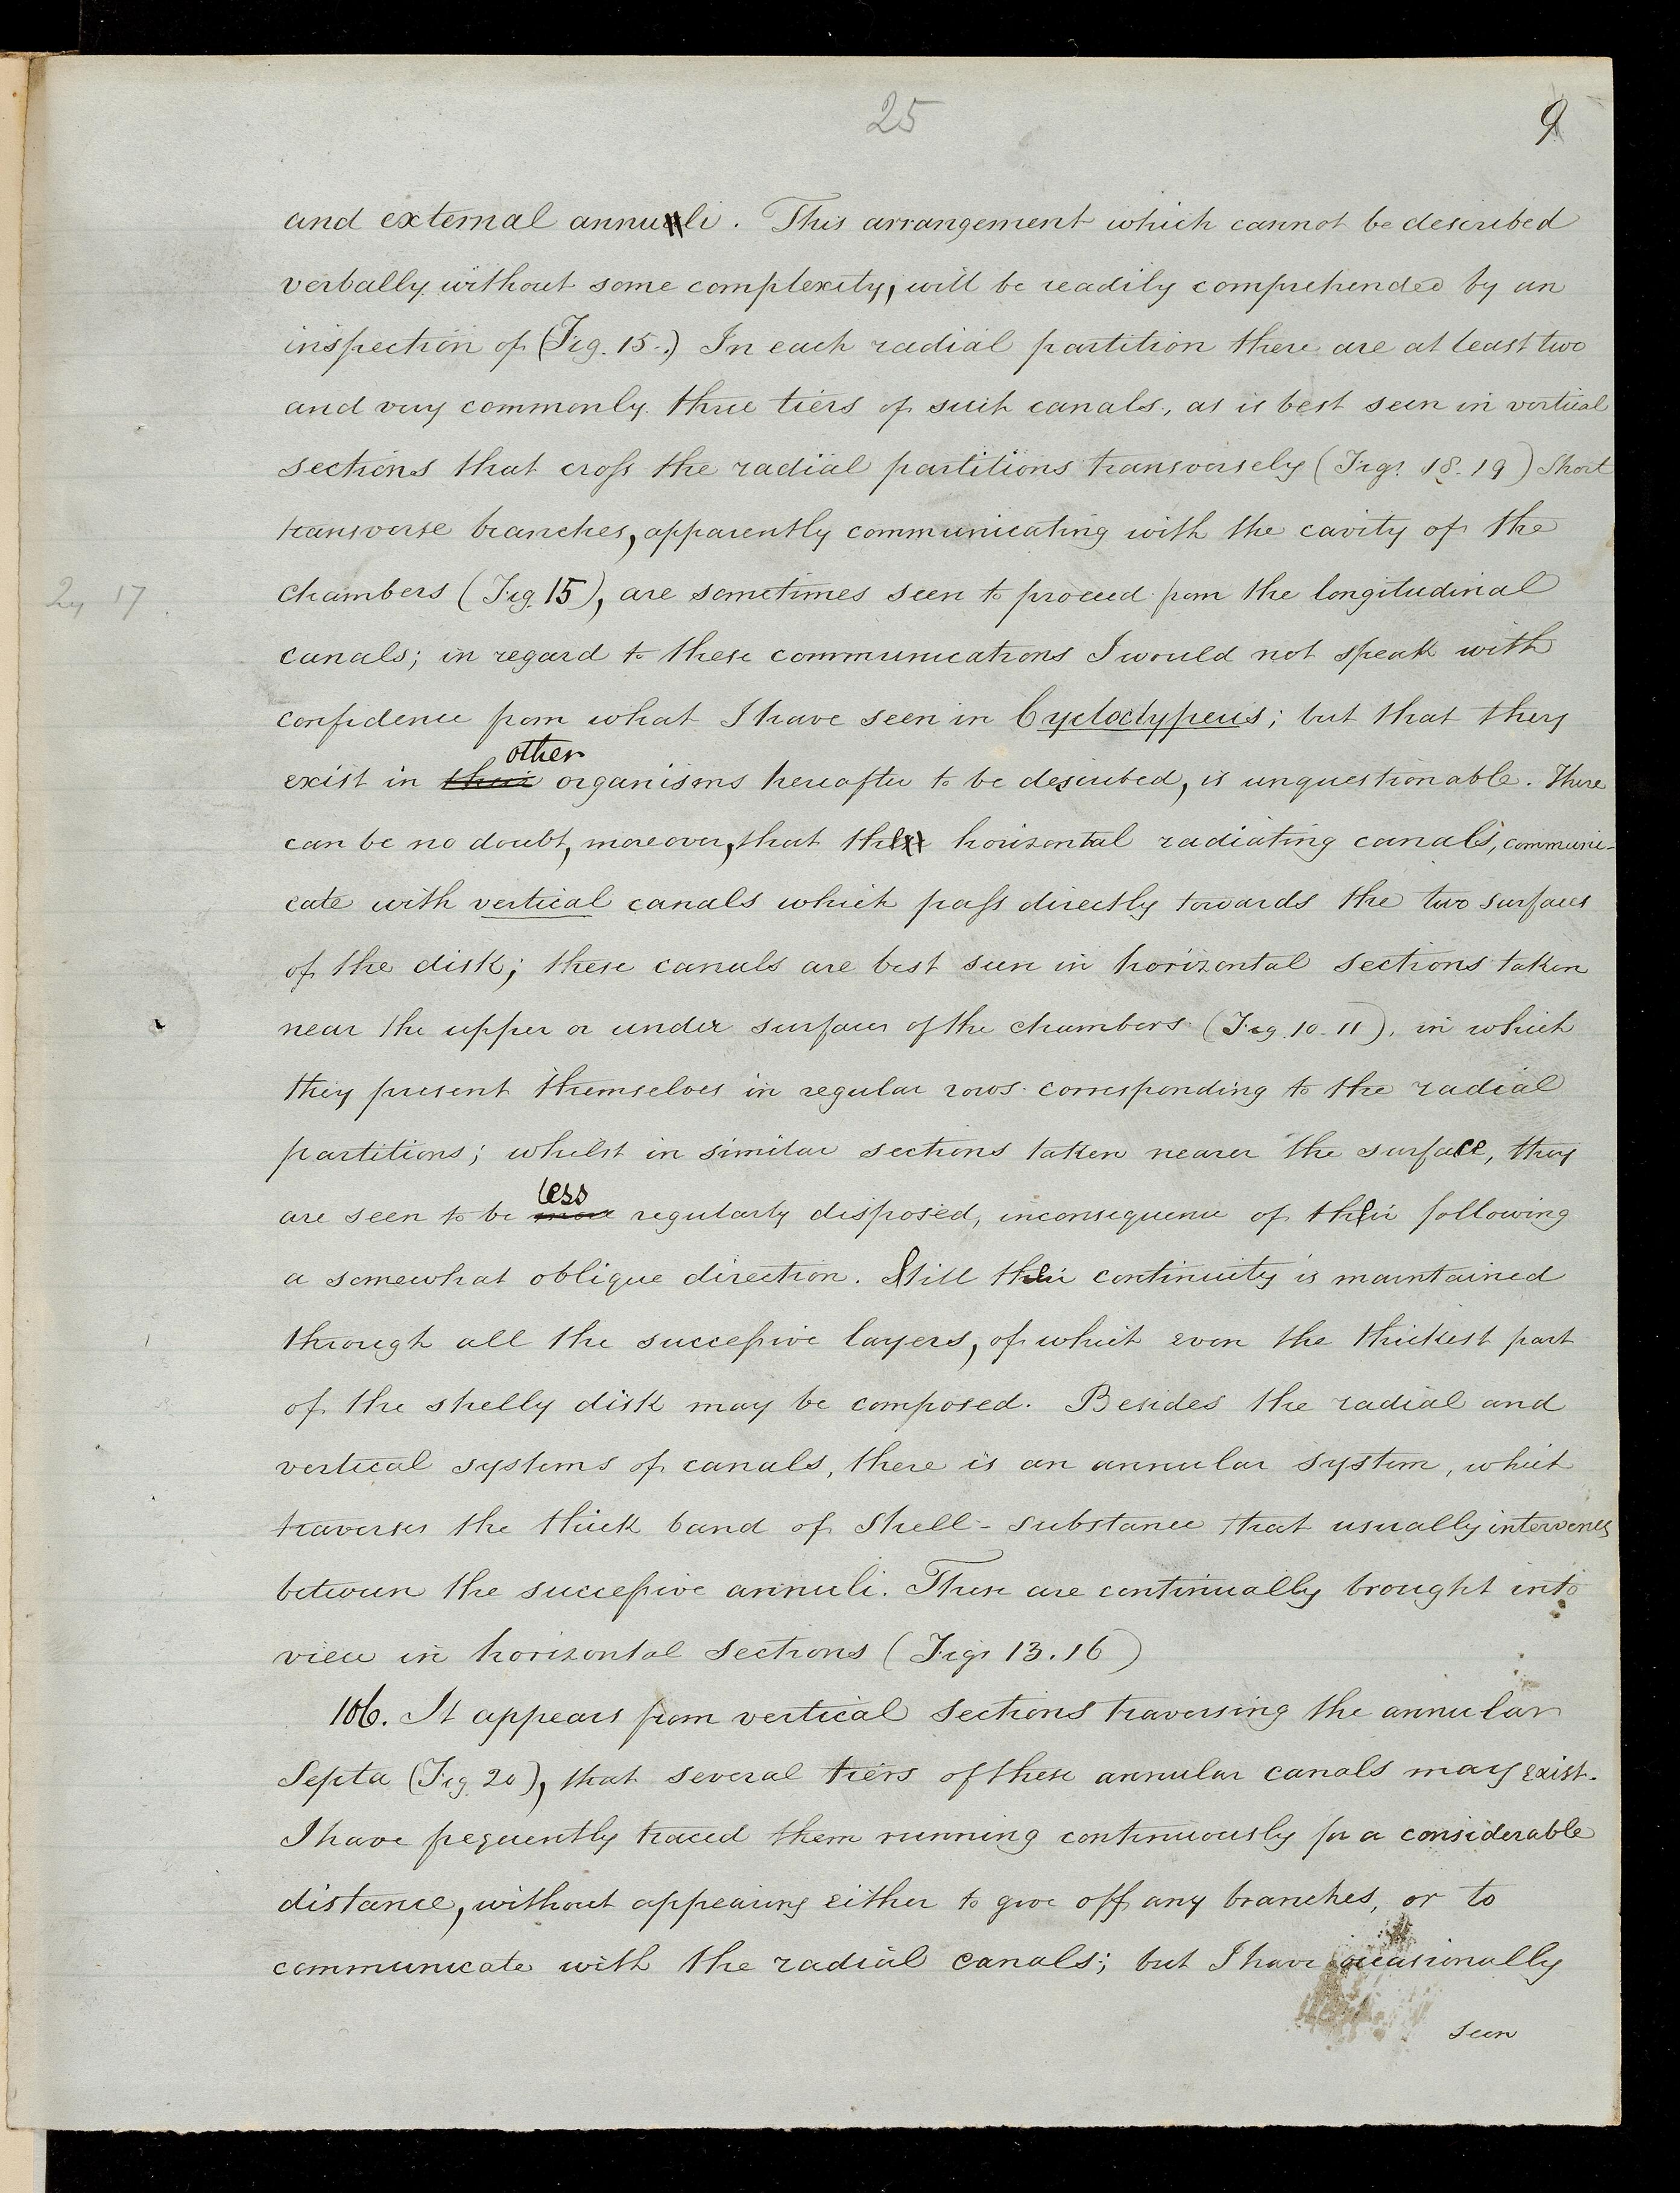 25
9
and external annuli. This arrangement which cannot be described
verbally without some complexity, will be readily comprehended by an
inspection of (Fig. 15.) In each radial partition there are at least two
and very commonly three tiers of such canals, as is best seen in vertical
sections that cross the radial partitions transversely (Figs. 18. 19) Short
transverse branches, apparently communicating with the cavity of the
17.
chambers (Fig. 15), are sometimes seen to proceed from the longitudinal
canals; in regard to these communications I would not speak with
confidence from what I have seen in Cycloclypeus; but that they
other
exist in their organisms hereafter to be described, is unquestionable. There
can be no doubt, moreover, that the horizontal radiating canals, communi-
cate with vertical canals which pass directly towards the two surfaces
of the disk; these canals are best seen in horizontal sections taken
near the upper or under surfaces of the chambers (Fig. 10. 11), in which
they present themselves in regular rows corresponding to the radial
partitions; whilst in similar sections taken nearer the surface, they
less
are seen to be more regularly disposed, in consequence of their following
a somewhat oblique direction. Still their continuity is maintained
through all the successive layers, of which even the thickest part
of the shelly disk may be composed. Besides the radial and
vertical systems of canals, there is an annular system, which
traverses the thick band of Shell-substance that usually intervenes
between the successive annuli. These are continually brought into
view in horizontal sections (Figs 13. 16)
106. It appears from vertical sections traversing the annular
Septa (Fig. 20), that several tiers of these annular canals may exist.
I have frequently traced them running continuously for a considerable
distance, without appearing either to give off any branches, or to
communicate with the radial canals; but I have occasionally
seen